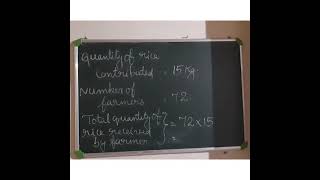 Quantity of rice
contributed = 15 Kg.
Number of
farmers = 72
Total quantity of
rice received } = 72 x 15
by farmer =